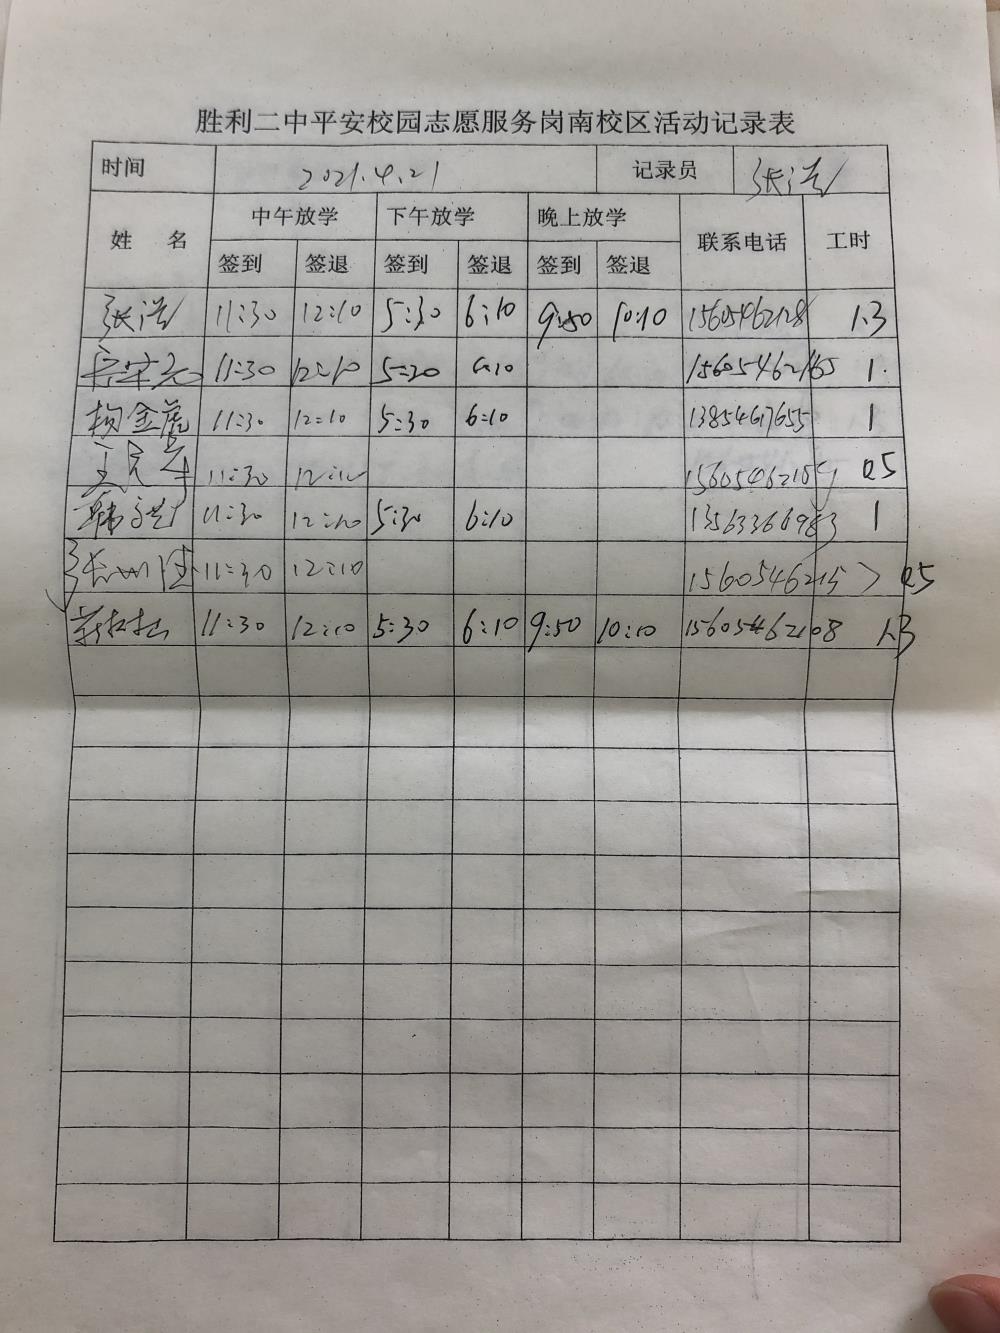 胜利二中平安校园志愿服务岗南校区活动记录表
时间 2021.4.21 记录员 张浩
姓 名 中午放学 下午放学 晚上放学 联系电话 工时
签到 签退 签到 签退 签到 签退
张浩 11:30 12:10 5:30 6:10 9:50 10:10 15605462128 1.3
11:30 12:10 5:30 6:10 15605462165 1
杨金虎 11:30 12:10 5:30 6:10 13854617655 1
11:30 12:10 0.5
11:30 12:10 5:30 6:10 13563366983 1
11:30 12:10 0.5
11:30 12:10 5:30 6:10 9:50 10:10 15605462108 1.3